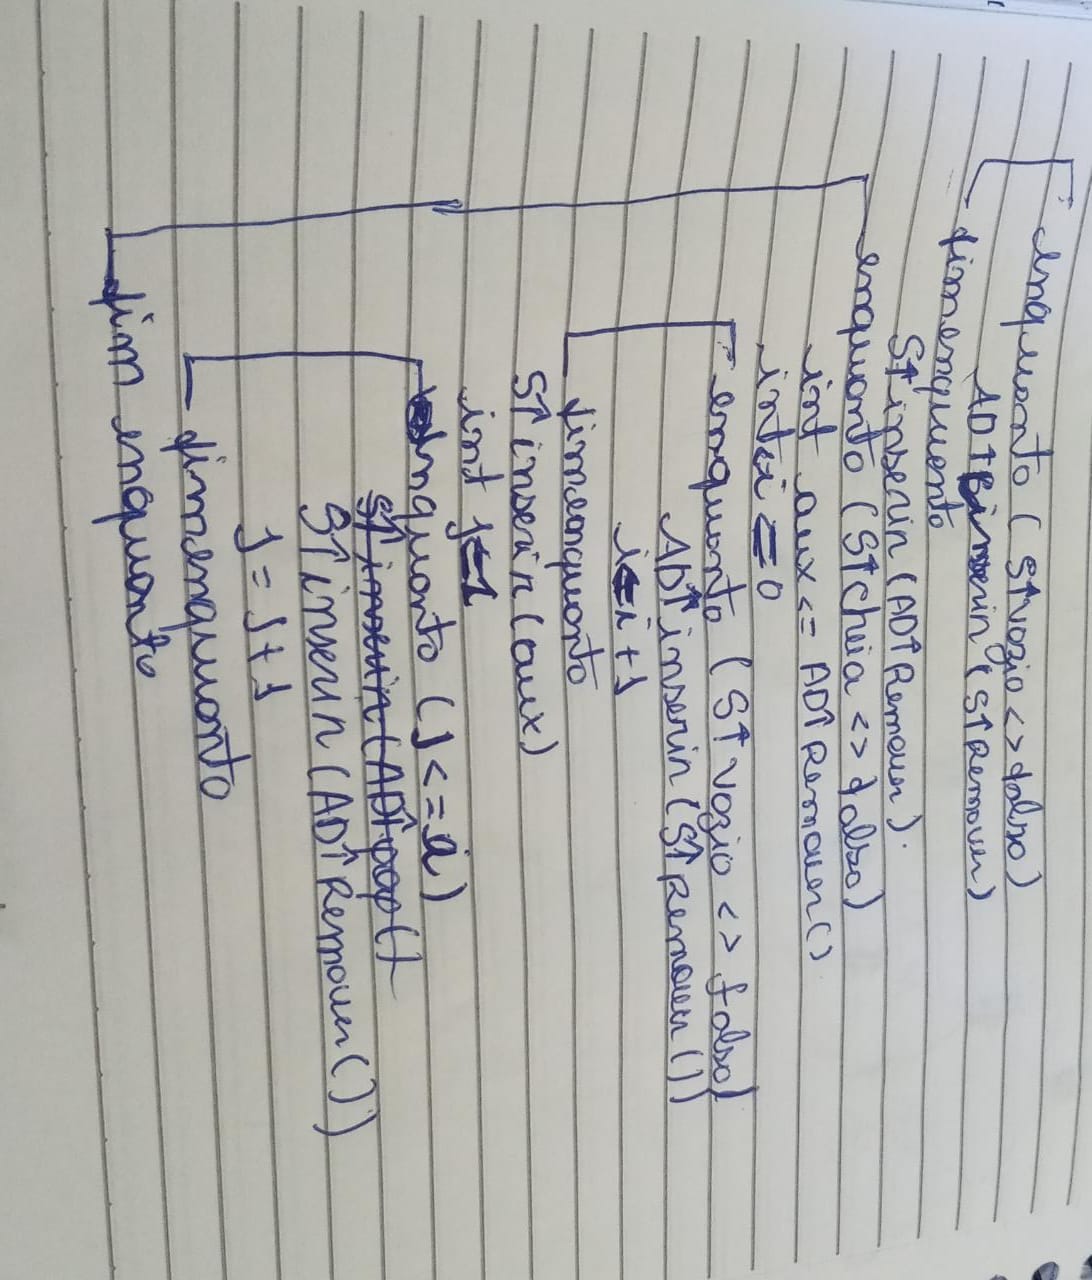 enquanto ( S↑vazio <> falso)
AD↑inserir (S↑Remover)
fimenquanto
S↑inserir (AD↑Remover).
enquanto (S↑cheia <> falso)
int aux <= AD↑Remover()
int i = 0
enquanto (S↑vazio <> falso)
AD↑inserir (S↑Remover())
i ← i + 1
fimenquanto
S↑inserir (aux)
int j ← 1
enquanto (j <= i)
S↑inserir (AD↑pop()
S↑inserir (AD↑Remover())
j = j + 1
fimenquanto
fim enquanto